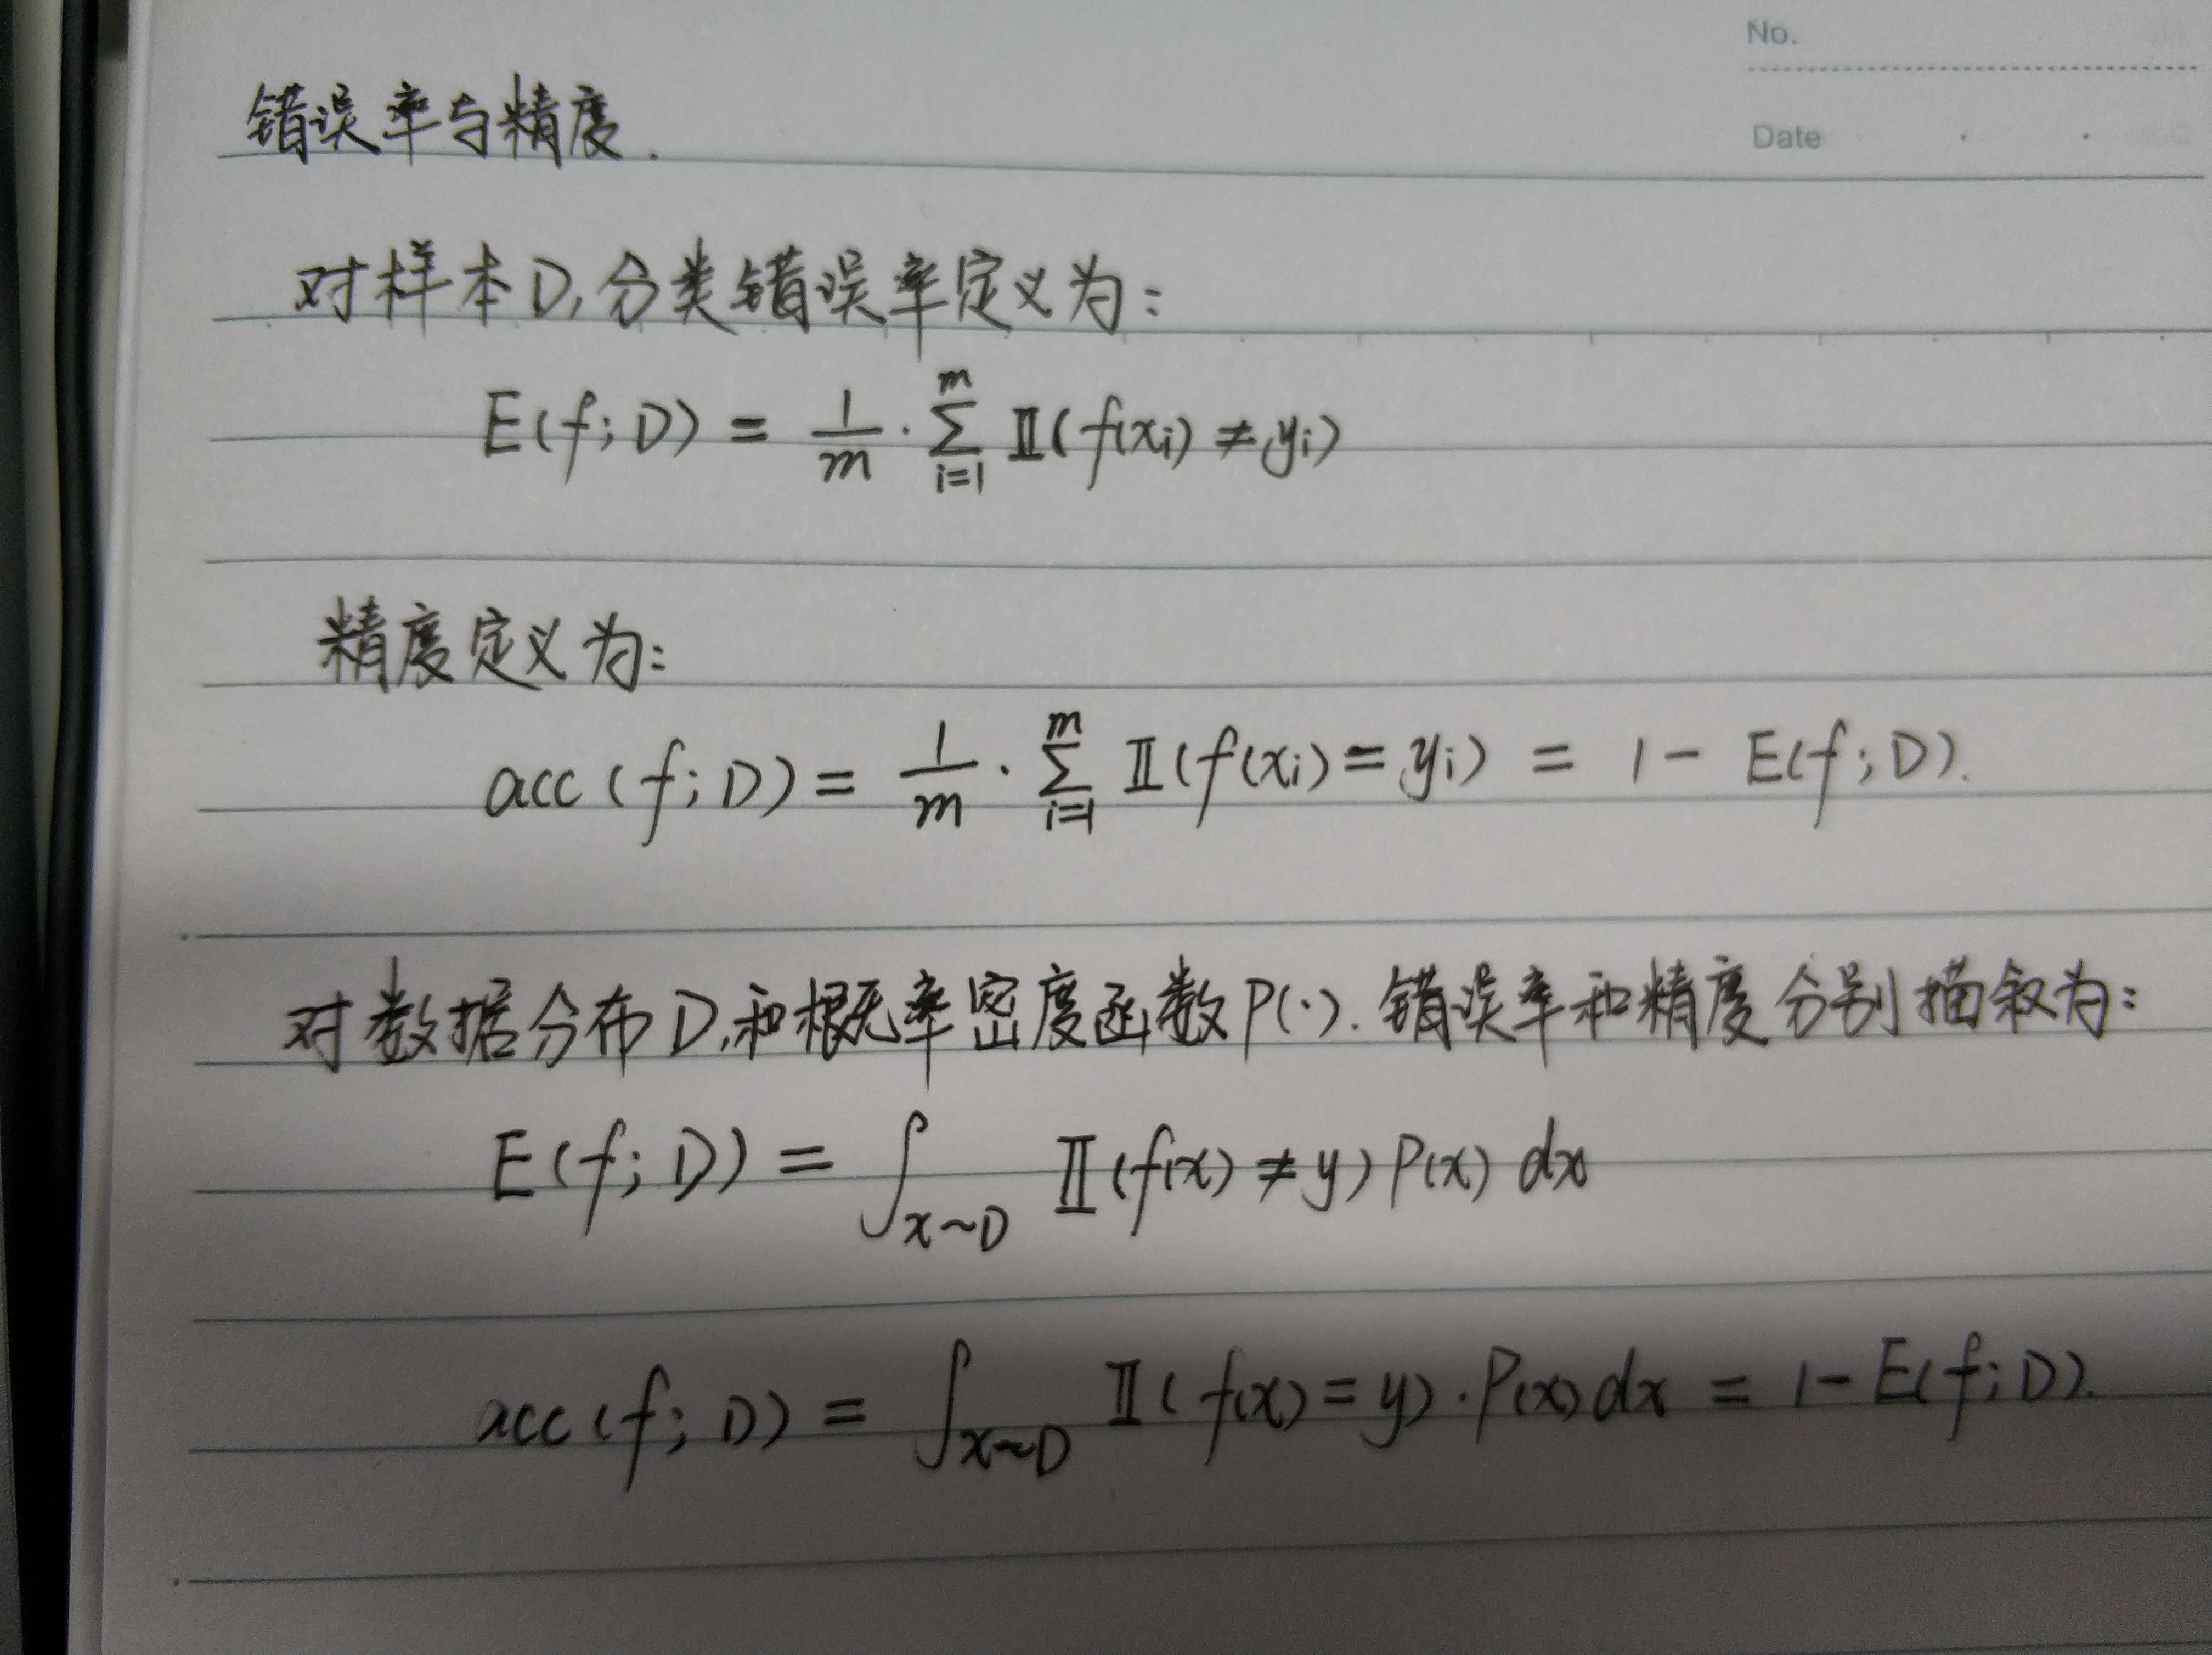 No.
Date
错误率与精度.
对样本D,分类错误率定义为:
E(f;D) = 1/m · ∑_{i=1}^{m} 𝕀(f(x_i) ≠ y_i)
精度定义为:
acc(f;D) = 1/m · ∑_{i=1}^{m} 𝕀(f(x_i) = y_i) = 1 - E(f;D).
对数据分布D,和概率密度函数P(·).错误率和精度分别描叙为:
E(f;D) = ∫_{x~D} 𝕀(f(x) ≠ y) P(x) dx
acc(f;D) = ∫_{x~D} 𝕀(f(x) = y)·P(x) dx = 1 - E(f;D).